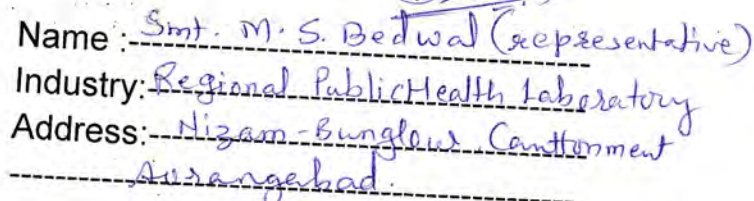 Name : Smt. M. S. Bedwal (representative)
Industry: Regional Public Health Laboratory
Address: Nizam-Bunglow Canttonment
Aurangabad.